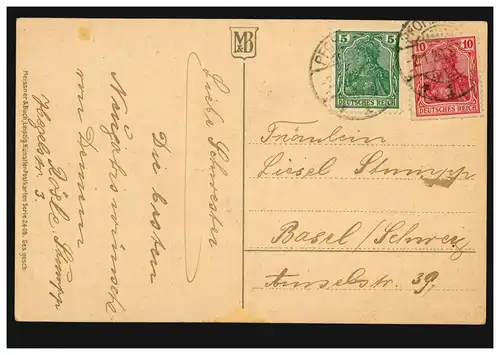 Meissner & Buch, Leipzig Künstler-Postkarten Serie 2446. Ges. gesch.
M&B
5
DEUTSCHES REICH
10
DEUTSCHES REICH
Liebe Schwester
Die besten
Neujahrswünsche
von Deinem
Rösle Stumpp
Hegelstr. 3.
Fräulein
Liesel Stumpp.
Basel/Schweiz
Amselstr. 39.